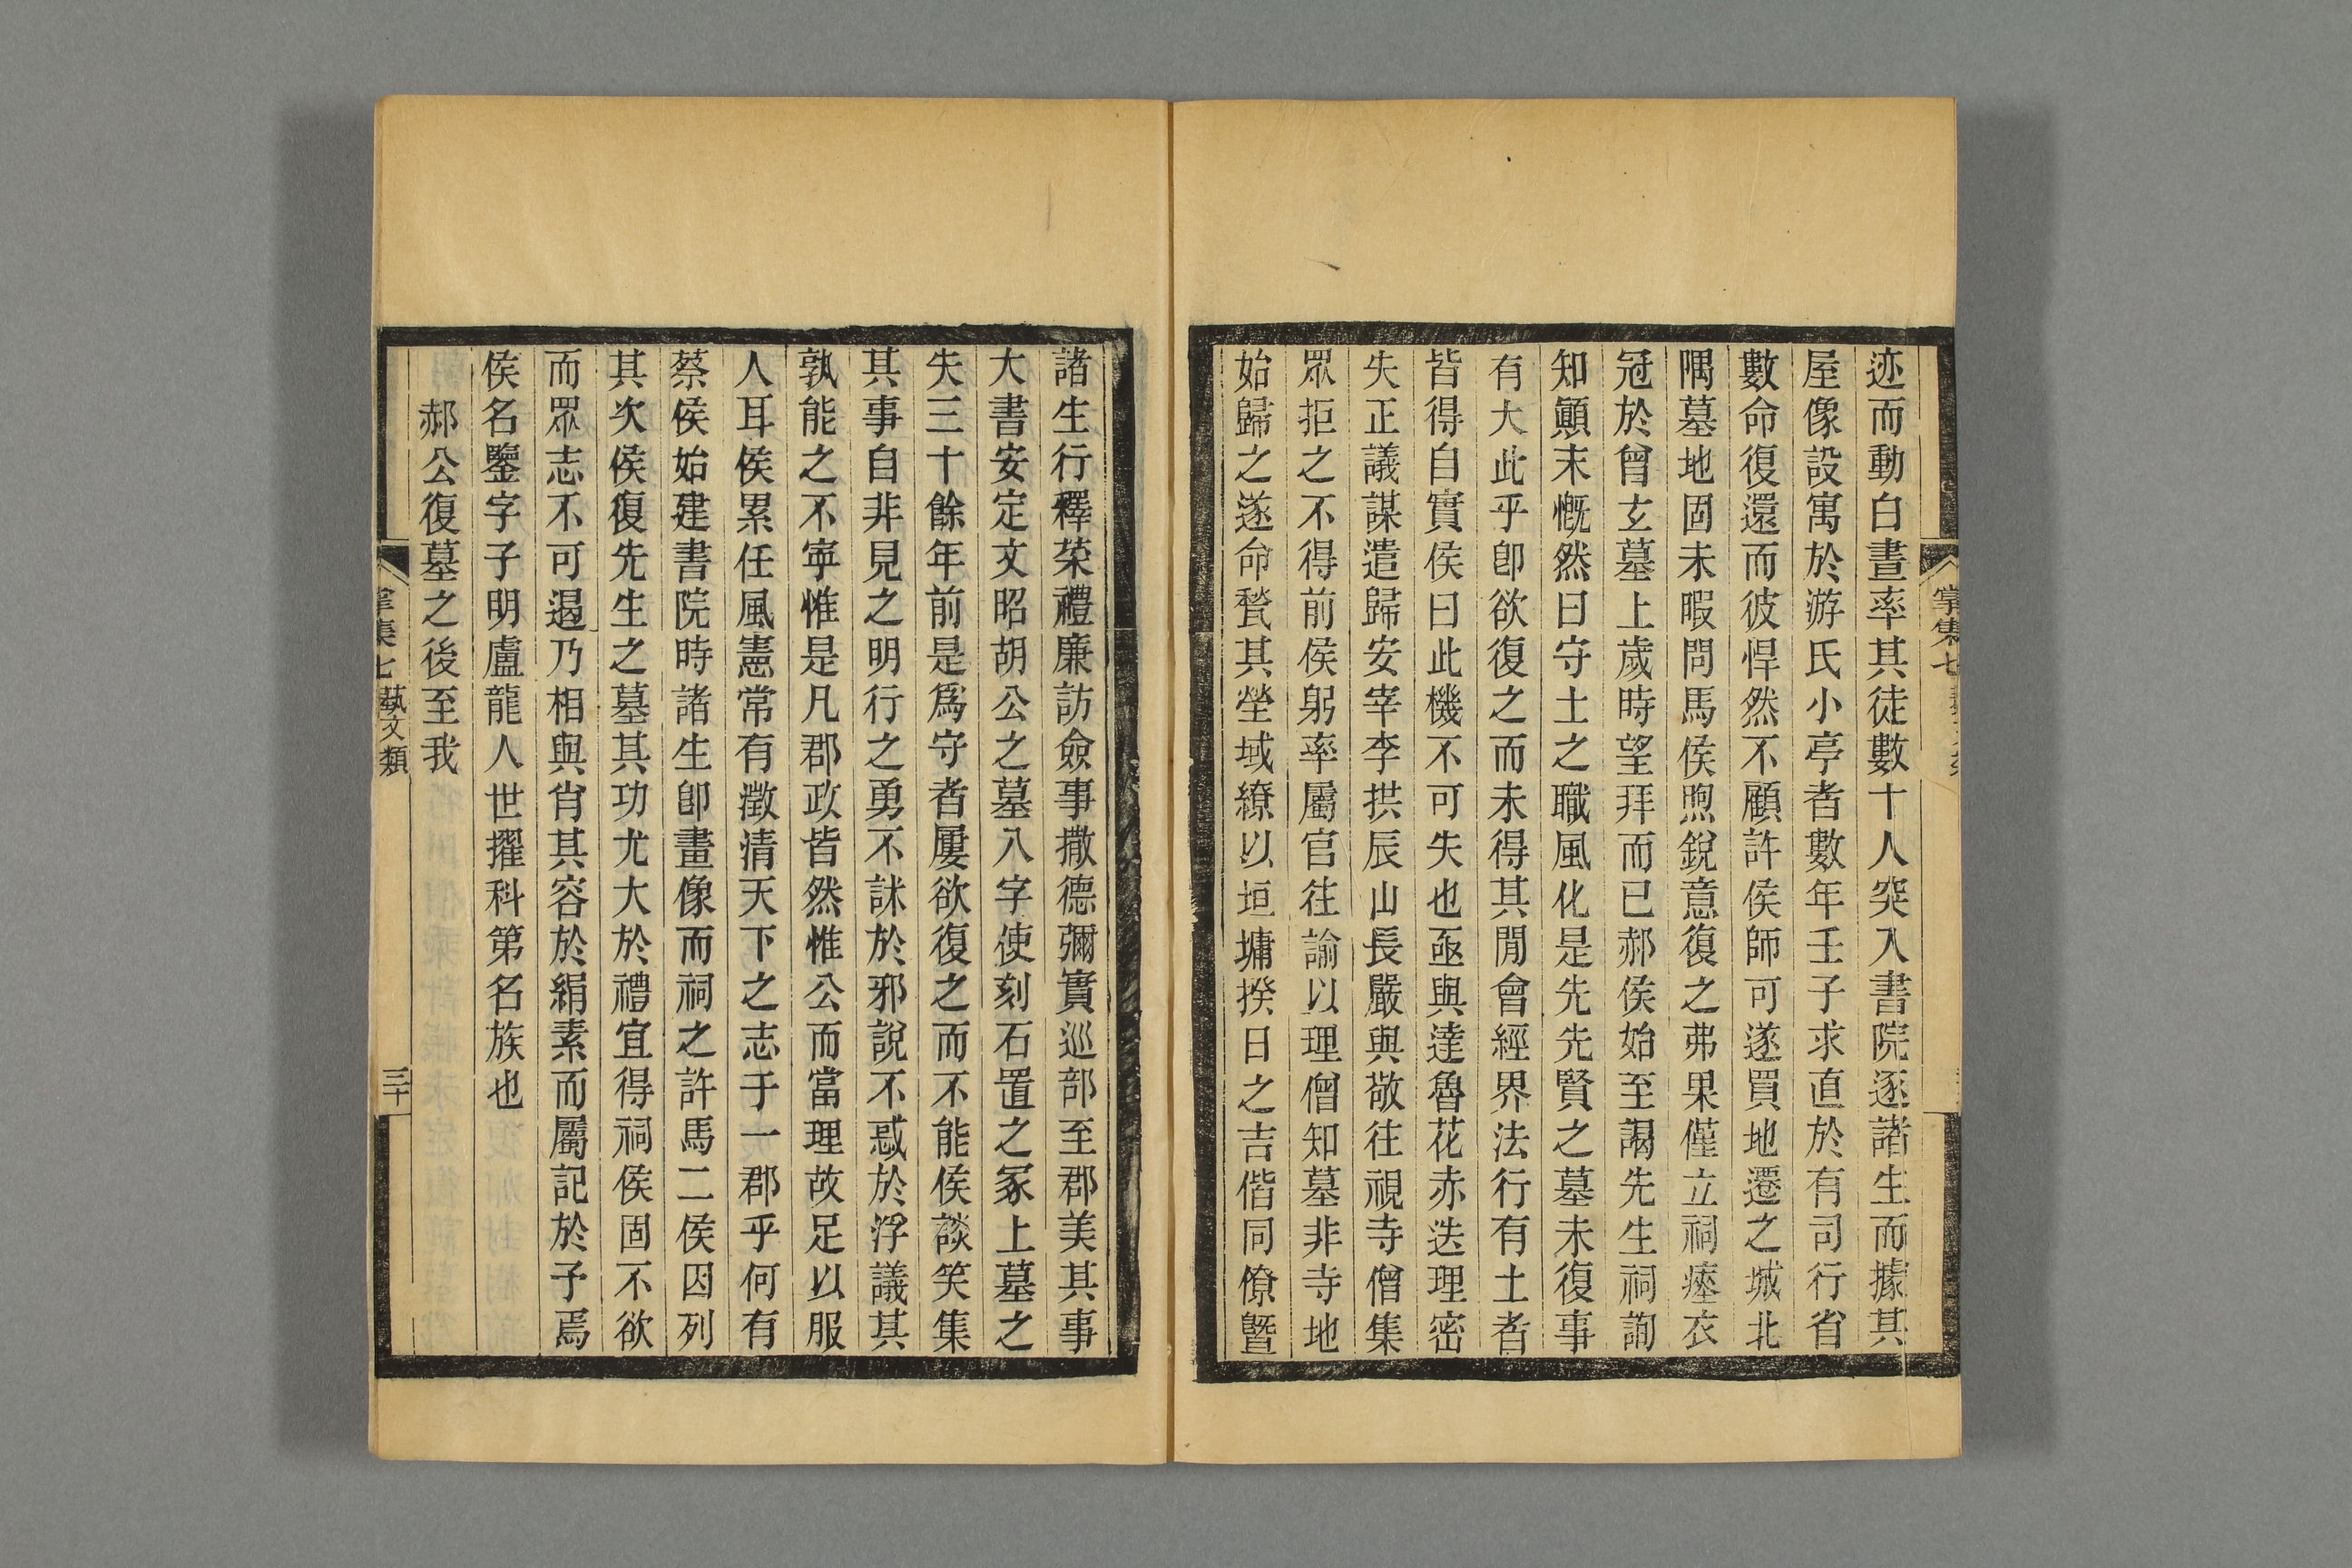 迹而動白晝率其徒數十人突入書院逐諸生而據其
屋像設寓於游氏小亭者數年壬子求直於有司行省
數命復還而彼悍然不顧許侯師可遂買地遷之城北
隅墓地固未暇問馬侯煦銳意復之弗果僅立祠瘞衣
冠於曾玄墓上歲時望拜而已郝侯始至謁先生祠詢
知顚末慨然曰守土之職風化是先先賢之墓未復事
有大此乎卽欲復之而未得其閒會經界法行有土者
皆得自實侯曰此機不可失也亟與達魯花赤迭理密
失正議謀遣歸安宰李拱辰山長嚴與敬往視寺僧集
眾拒之不得前侯躬率屬官往諭以理僧知墓非寺地
始歸之遂命甃其塋域繚以垣墉揆日之吉偕同僚曁
諸生行釋菜禮廉訪僉事撒德彌實巡部至郡美其事
大書安定文昭胡公之墓八字使刻石置之冢上墓之
失三十餘年前是爲守者屢欲復之而不能侯談笑集
其事自非見之明行之勇不訹於邪說不惑於浮議其
孰能之不寧惟是凡郡政皆然惟公而當理故足以服
人耳侯累任風憲常有澂清天下之志于一郡乎何有
蔡侯始建書院時諸生卽畫像而祠之許馬二侯因列
其次侯復先生之墓其功尤大於禮宜得祠侯固不欲
而眾志不可遏乃相與肖其容於絹素而屬記於予焉
侯名鑒字子明盧龍人世擢科第名族也
郝公復墓之後至我
掌集七 藝文類
三十